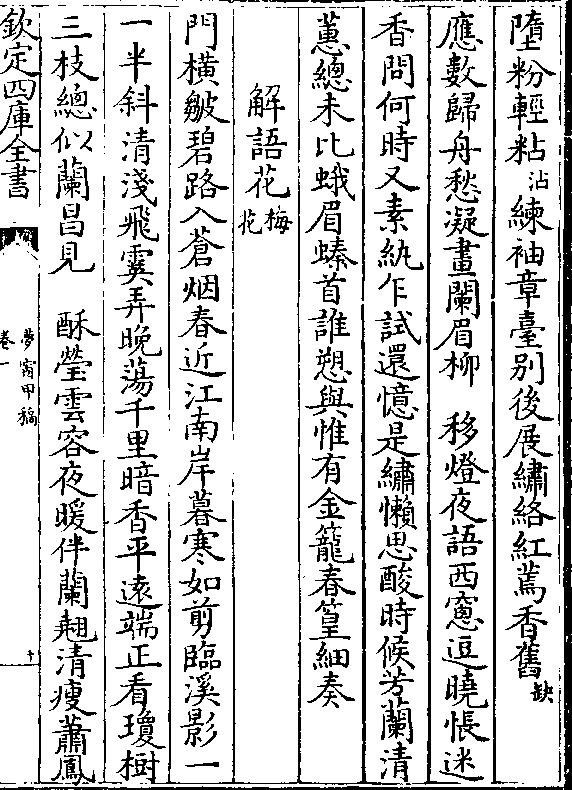 墮粉輕粘沾練袖章臺别後展繡絡紅蔫香舊缺
應數歸舟愁凝畫闌眉柳　移燈夜語西窻逗曉帳迷
香問何時又素紈乍試還憶是繡懶思酸時候芳蘭清
蕙總未比蛾眉螓首誰愬與惟有金籠春篁細奏
解語花梅花
門橫皺碧路入蒼烟春近江南岸暮寒如剪臨溪影一
一半斜清淺飛霙弄晚蕩千里暗香平逺端正看瓊樹
三枝總似蘭昌見　酥瑩雲容夜暖伴蘭翹清瘦蕭鳳
欽定四庫全書
夢窗甲稿
卷一
十